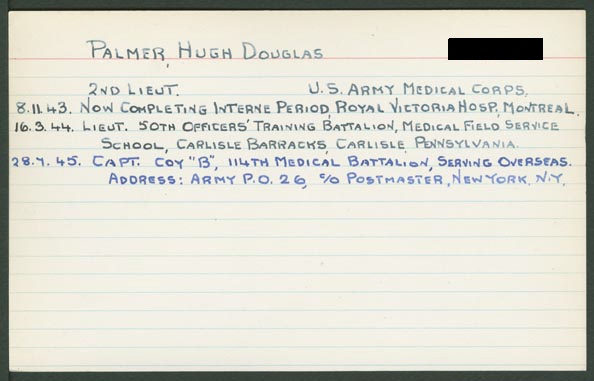 PALMER, HUGH DOUGLAS
2ND LIEUT. U.S. ARMY MEDICAL CORPS.
8.11.43. NOW COMPLETING INTERNE PERIOD, ROYAL VICTORIA HOSP, MONTREAL.
16.3.44. LIEUT. 50TH OFFICERS' TRAINING BATTALION, MEDICAL FIELD SERVICE
SCHOOL, CARLISLE BARRACKS, CARLISLE, PENNSYLVANIA.
CAPT. COY "B", 114TH MEDICAL BATTALION, SERVING OVERSEAS.
ADDRESS: ARMY P.O. 26, c/o POSTMASTER, NEW YORK, N.Y.